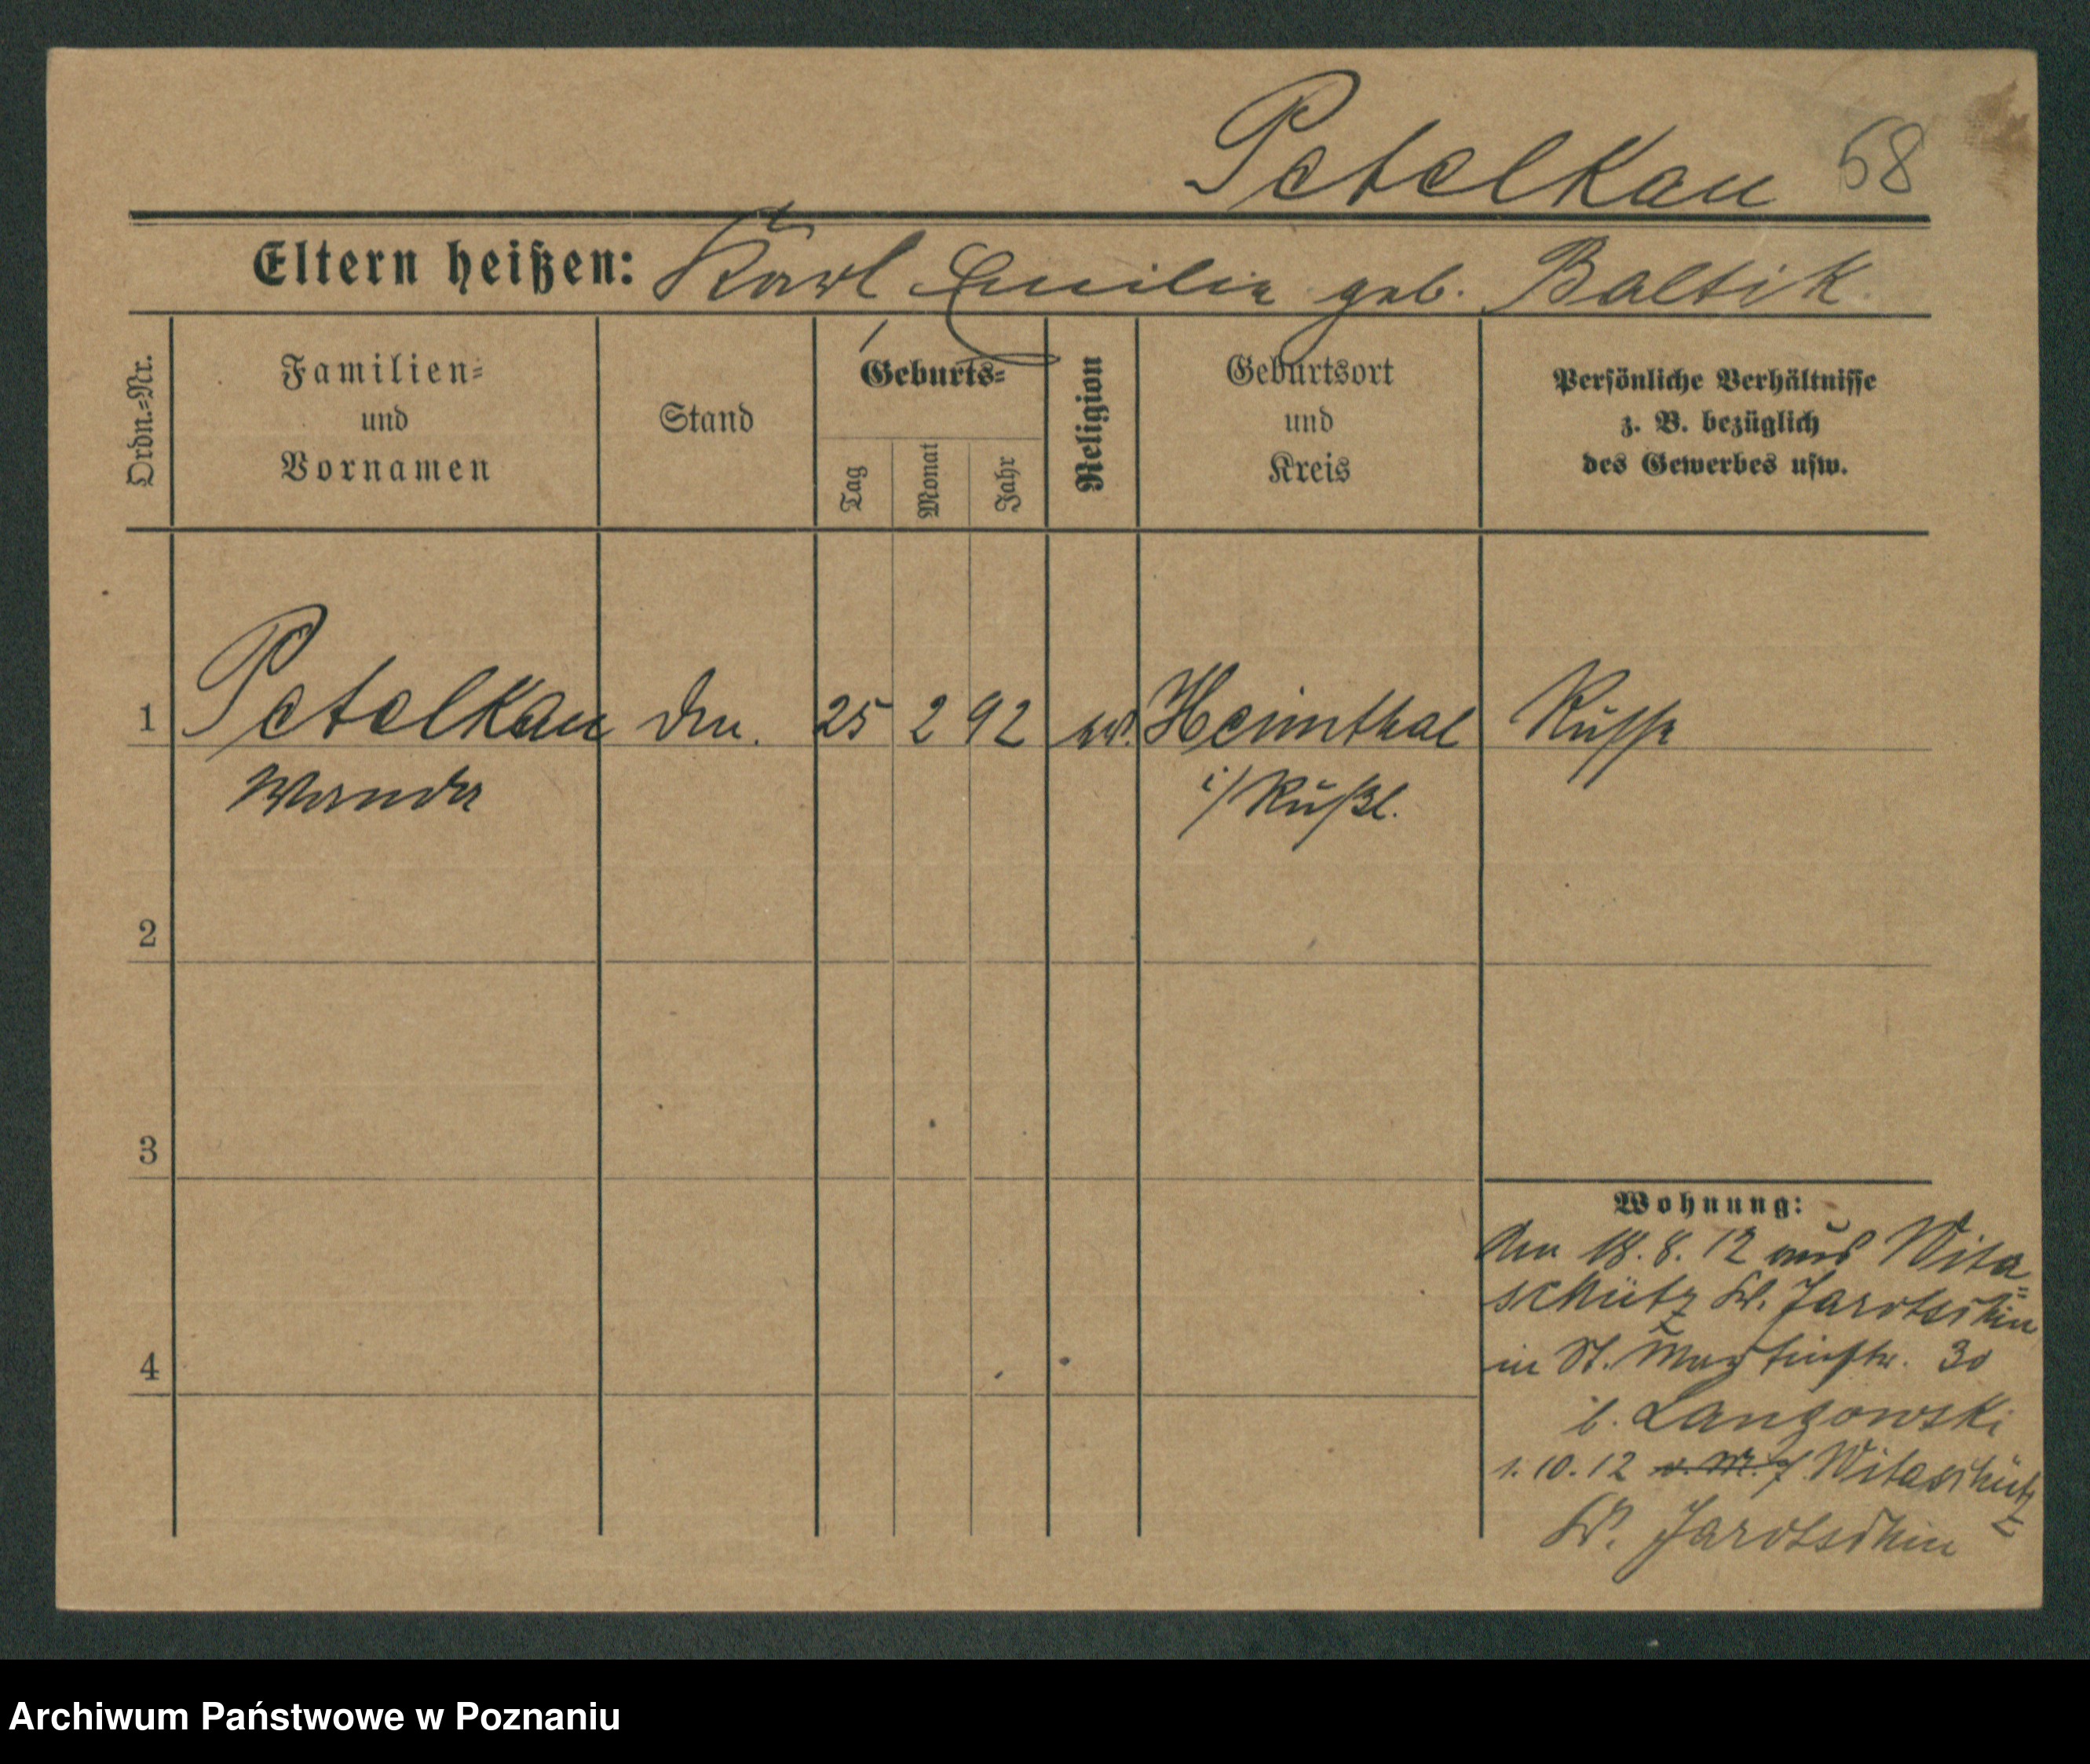 Petelkau 68
Eltern heißen: Karl Emilie geb. Baltik
Ordn.=Nr.
Familien=
und
Vornamen
Stand
Geburts=
Tag
Monat
Jahr
Religion
Geburtsort
und
Kreis
Persönliche Verhältnisse
z. B. bezüglich
des Gewerbes usw.
1 Petelkau 25 2 92 ev. Heimthal Russe
Wanda i/Rußl.
2
3
4
Wohnung:
18. 8. 12 aus Wita=
schütz Kr. Jarotschin
in St. Martinstr. 30
b. Langowski
1. 10. 12 Witaschütz
Kr. Jarotschin
Archiwum Państwowe w Poznaniu